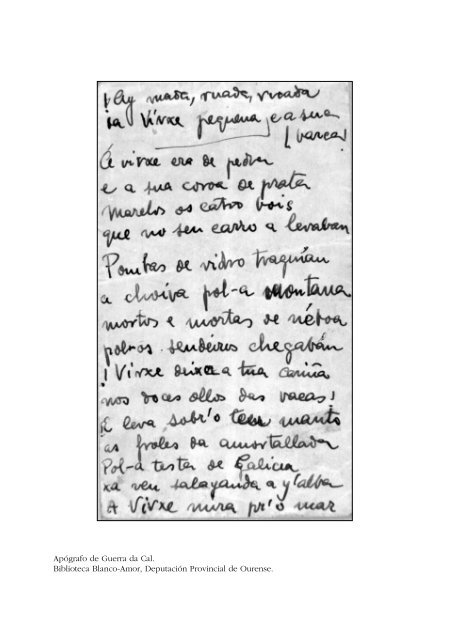 ¡Ay ruada, ruada, ruada
da Virxe pequena, e a sua
¡barca!
A virxe era de pedra
e a sua coroa de prata
marelos os catro bois
que no seu carro a levaban
Pombas de vidro traguían
a choiva pol-a montana
mortos e mortas de néboa
pol-os sendeiros chegabán
¡Virxe deixa a tua cariña
nos doces ollos das vacas!
E leva sobr'o teu manto
as froles da amortallada
Pol-a testa de Galicia
xa ven salayando a y'alba
A Virxe mira pr'o mar
Apógrafo de Guerra da Cal.
Biblioteca Blanco-Amor, Deputación Provincial de Ourense.